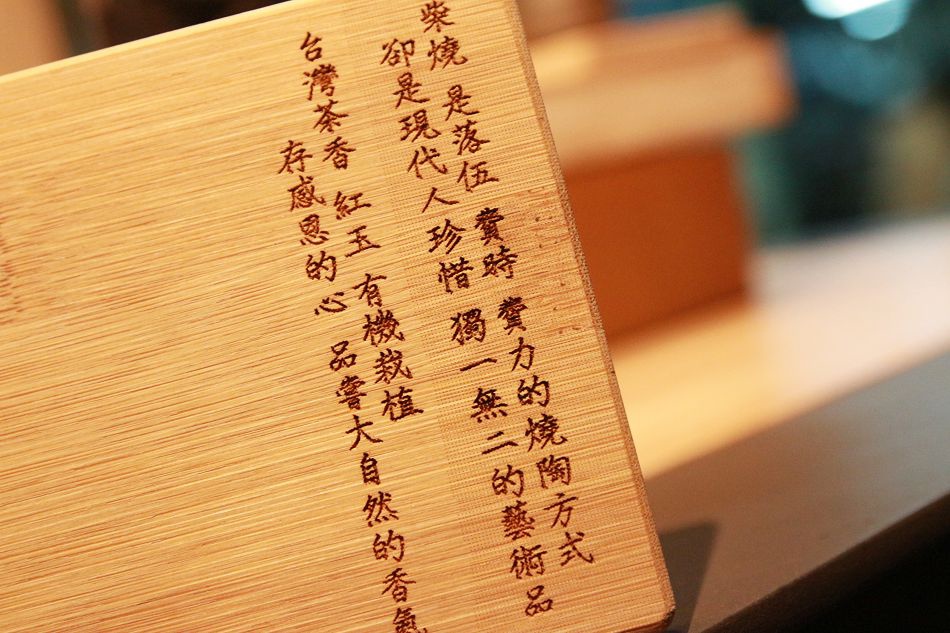 柴燒 是落伍 費時 費力的燒陶方式
卻是現代人珍惜 獨一無二的藝術品
台灣茶香 紅玉 有機栽植
存感恩的心 品嘗大自然的香氣